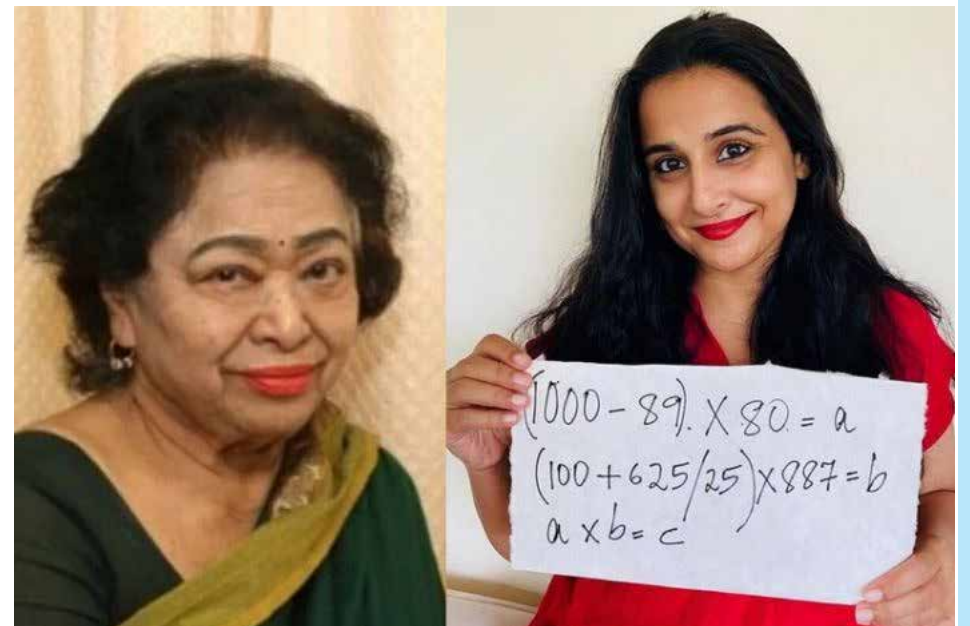 (1000 - 89). X 80. = a
(100 + 625/25) X 887 = b
a x b = c